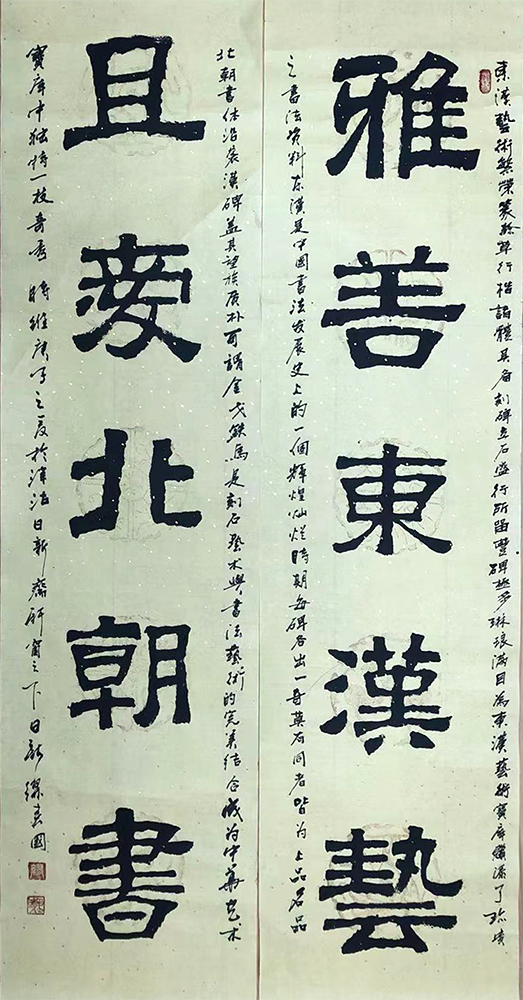 東漢藝術繁榮篆隸草行楷諸體具備刻碑立石盛行所留豐碑極多琳琅滿目為東漢藝術寶庫鑲滿了珍貴
雅善東漢藝
之書法资料东漢是中國書法发展史上的一個輝煌灿烂時期每碑各出一奇莫有同者皆为上品名品
北朝書体沿袭漢碑益其望族质朴可謂金戈鉄馬是刻石藝术與書法藝術的完美结合成为中華艺术
且愛北朝書
寶庫中独特一枝奇秀 時維庚子之夏於津沽日新齋研窗之下日新 春國